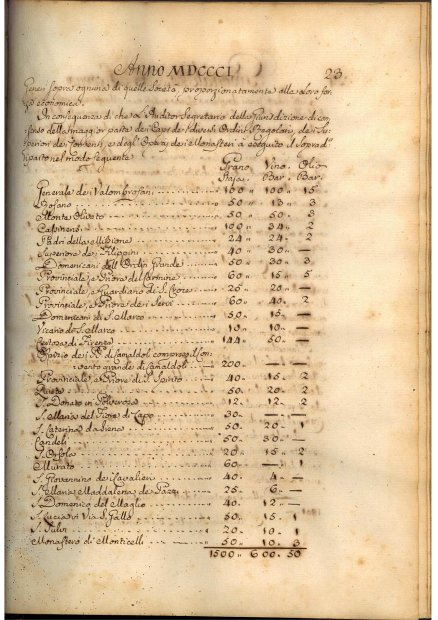 Anno MDCCCI. 23
Generi sopra ognuna di quelle Società, proporzionatamente alla loro for-
za economica.
In conseguenza di che al Auditor Segretario della Giurisdizione di con-
senso della maggior parte dei Capi de' diversi Ordini Regolari, dei Su-
periori dei Conventi, e degl' Operaj dei Monasteri à eseguito il sopradº
riparto nel modo seguente
Grano Vino Olio
Staja Bar. Bar.
Generale dei Valombrosani 100 " 100 " 15
50 " 13 " 3
Monte Oliveto 50 " 50 " 3
100 " 34 " 2
Padri della Missione 24 " 24 " 2
de Filippini 40 " 30 " —
Domenicani dell' Ordin Grande 50 " 30 " 3
Provinciale, e Priore del Carmine 60 " 15 " 5
Provinciale, e Guardiano di S. Croce 25 " 20 " —
Provinciale, e Priore dei Servi 60 " 40 " 2
Domenicani di S. Marco 50 " 15 " —
Vicario di S. Marco 10 " 10 " —
Certosa di Firenze 144 " 50 " —
Ospizio dei PP. di Camaldoli compreso il Con-
vento grande di Camaldoli 200 " — —
Provinciale, e Priore di S. Spirito 40 " 15 " 2
50 " 20 " 2
S. Donato in Polverosa 12 " 12 " 2
S. Maria del Fiore di Lapo 30 " — —
S. Caterina da Siena 50 " 20 " 1
Candeli 50 " 30 " —
S. Orsola 20 " 15 " 2
Murate 60 " — 1
S. Giovannino dei Cavalieri 40 " 4 " —
S. Maria Maddalena de Pazzi 25 " 6 " —
S. Domenico del Maglio 40 " 12 " —
S. Lucia di Via S. Gallo 50 " 15 " 1
20 " 10 " 1
Monastero di Monticelli 50 " 10 " 3
1500 " 600 " 50